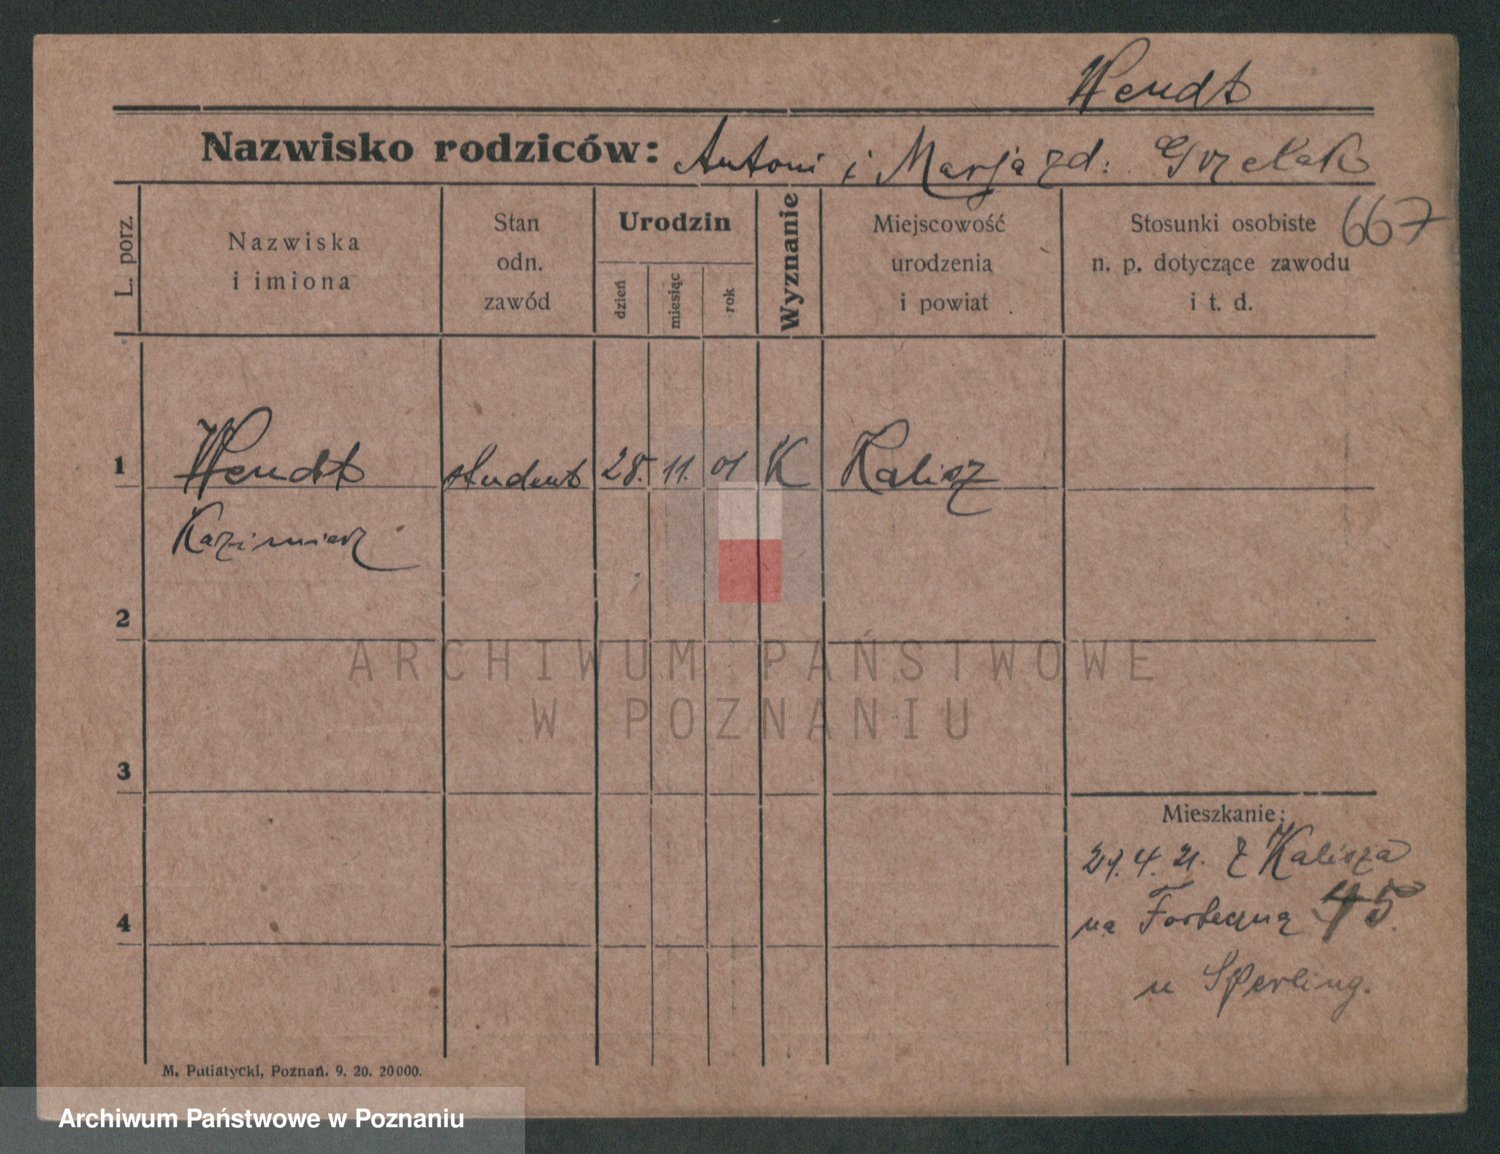 Wendt
Nazwisko rodziców: Antoni i Marja zd: Grzelak
667
L. porz.
Nazwiska
i imiona
Stan
odn.
zawód
Urodzin
dzień
miesiąc
rok
Wyznanie
Miejscowość
urodzenia
i powiat
Stosunki osobiste
n. p. dotyczące zawodu
i t. d.
1 Wendt student 28. 11. 01 K Kalisz
Kazimierz
2
3
4
Mieszkanie:
21. 4. 21. z Kalisza
na Forteczną 45
u Sperling.
ARCHIWUM PAŃSTWOWE
W POZNANIU
M. Putiatycki, Poznań. 9. 20. 20000.
Archiwum Państwowe w Poznaniu